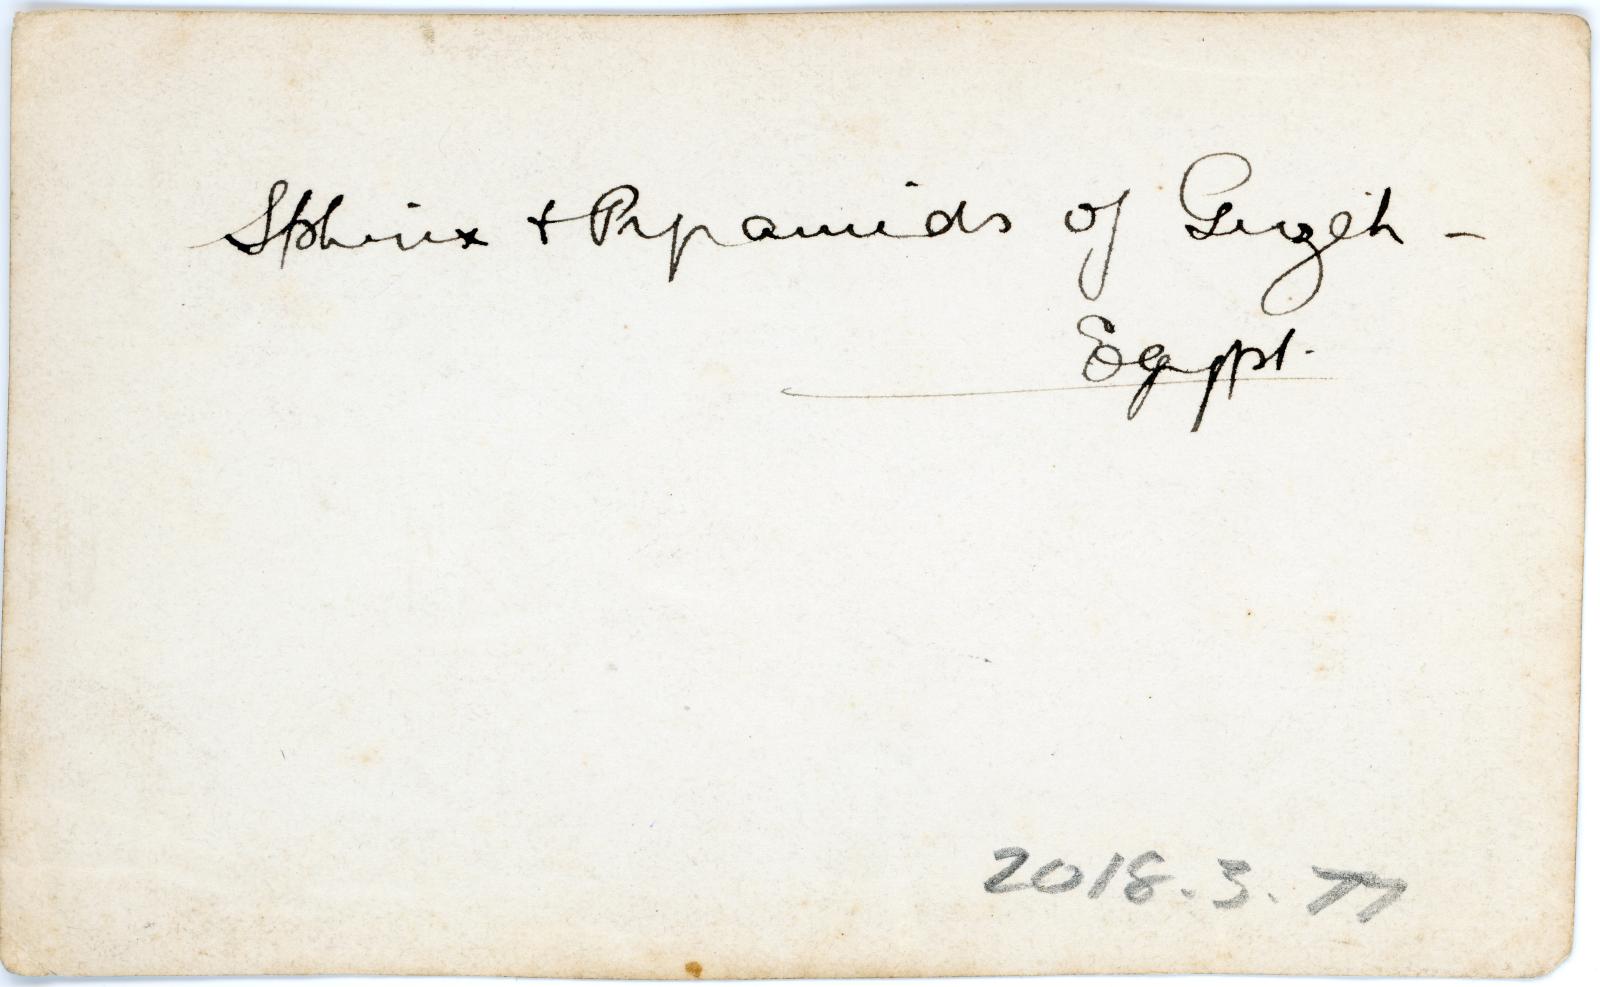 Sphinx + Pyramids of Gizeh -
Egypt.
2018.3.77